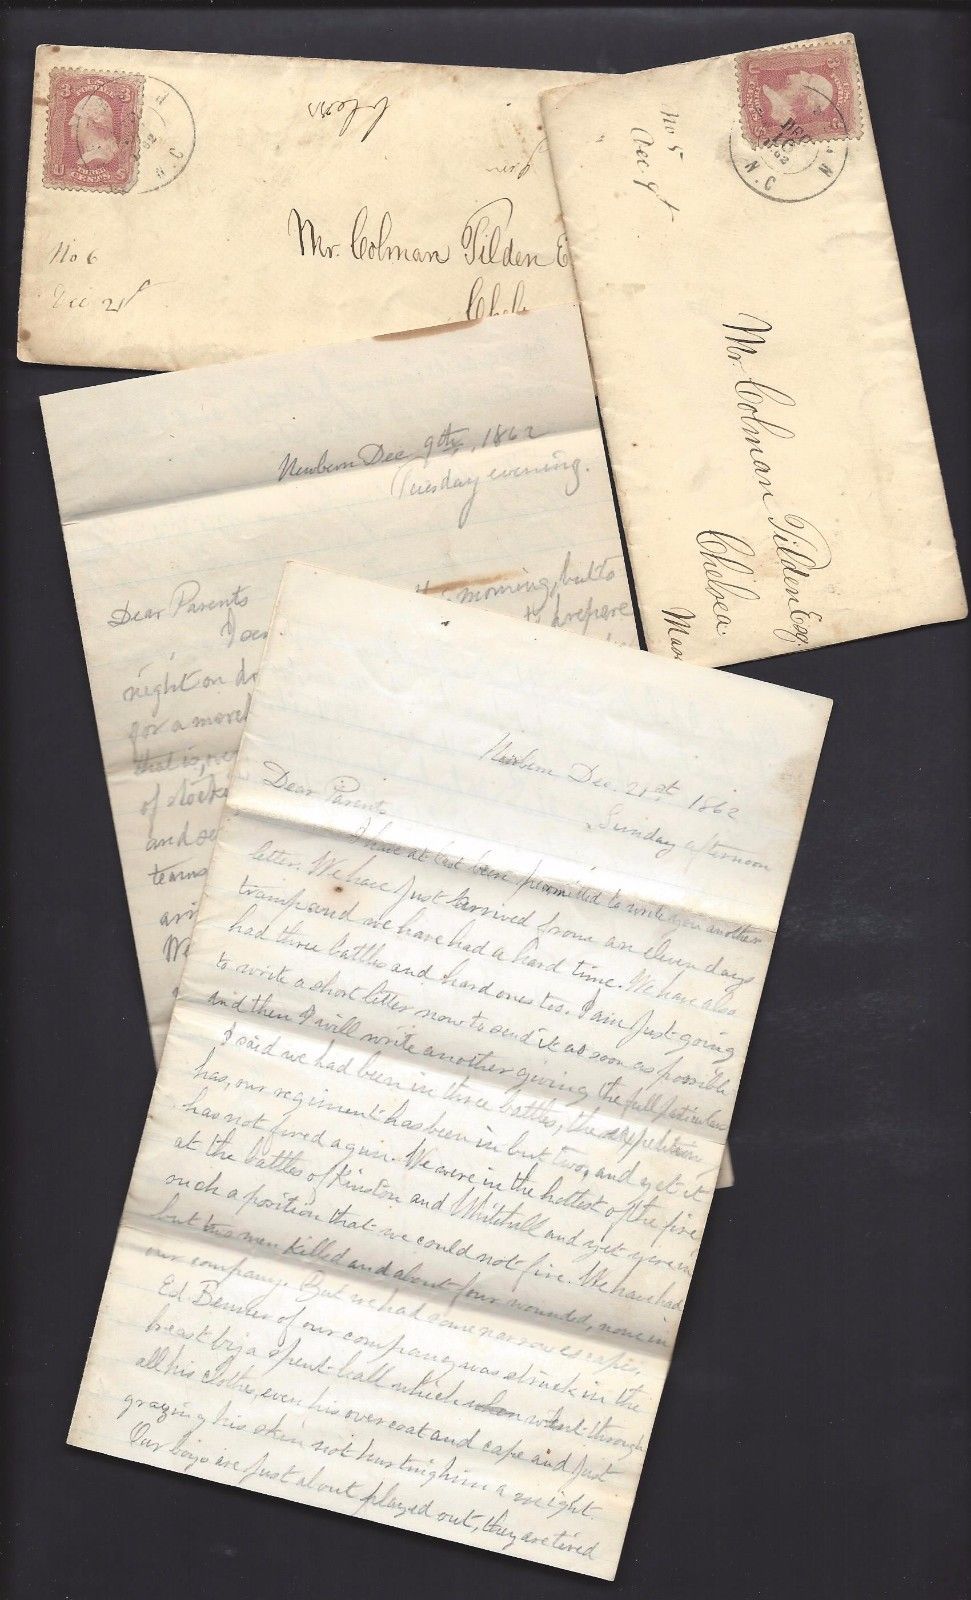 3 3
U.S. POSTAGE
THREE CENTS
62
N.C
No 6
Dec 21st
Mr. Colman Tilden E
Chel
3
DEC
1862
N.C
No 5
Dec 9th
Mr. Colman Tilden Esq.
Chelsea
Mass
Newbern Dec 9th, 1862
Tuesday evening.
Dear Parents
I
morning, but to
prepare
night on
for a
that is,
of
and
teams
We
Newbern Dec. 21st 1862
Sunday afternoon
Dear Parents
I have at last been permitted to write you another
letter. We have just arrived from an eleven days
tramp and we have had a hard time. We have also
had three battles and hard ones too. I am just going
to write a short letter now to send it as soon as possible
and then I will write another giving the full particulars
I said we had been in three battles, the expedition
has, our regiment has been in but two, and yet it
has not fired a gun. We were in the hottest of the fire
at the battles of Kinston and Whitehall and yet were in
such a position that we could not fire. We have had
but two men killed and about four wounded, none in
our company. But we had some narrow escapes.
Ed Benner of our company was struck in the
breast by a spent ball which when went through
all his clothe, even his overcoat and cape and just
grazing his skin not hurting him a might.
Our boys are just about played out, they are tired